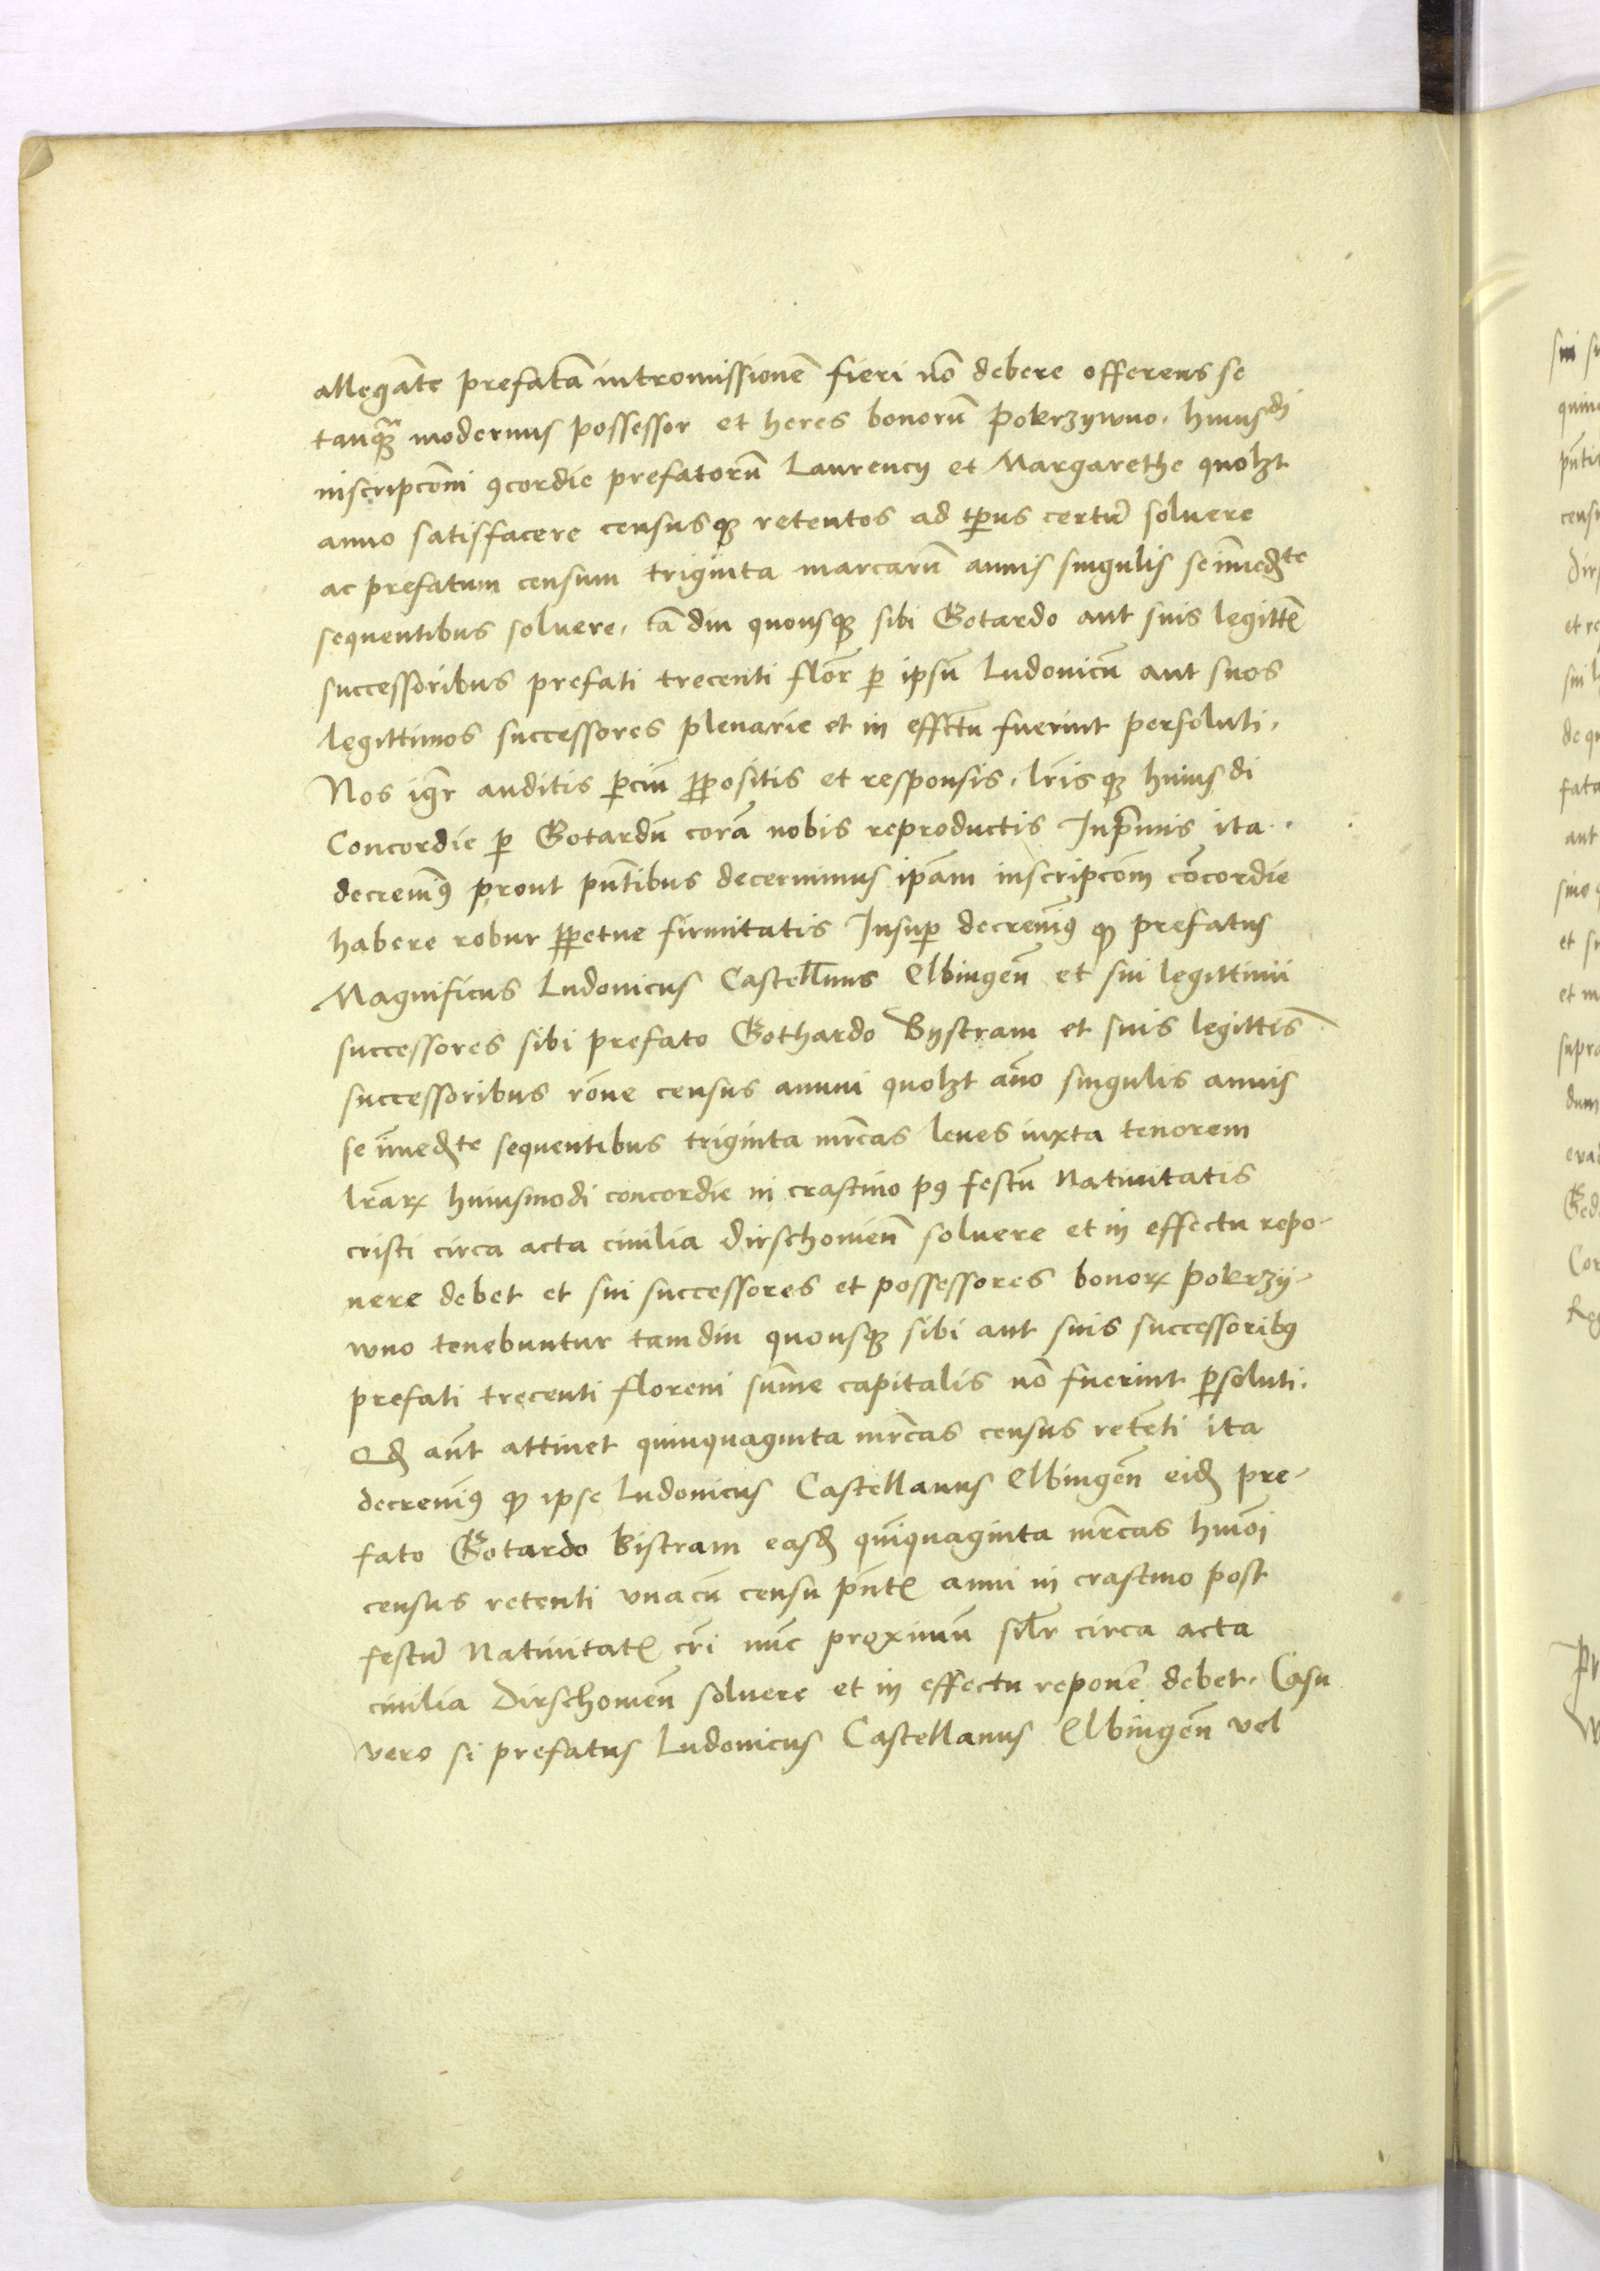 allegāte prefatā intromissionē fieri nō debere offerens se
tanqꝫ modernus possessor et heres bonorū Pokrzywno. huiusdi
inscripcōni ꝯcordie prefatorū Laurencij et Margarethe quolꝫt
anno satisfacere censusqꝫ retentos ad tp̄us certū soluere
ac prefatum censum triginta marcarū annis singulis se īmedte
sequentibus soluere. tā diu quousqꝫ sibi Gotardo aut suis legittē
successoribus prefati trecenti flor̄ ꝑ ipsū Ludouicū aut suos
legittimos successores plenarie et in effctu fuerint persoluti.
Nos igr̄ auditis ꝑciū ꝓpositis et responsis. lr̄isqꝫ huiusdi
Concordie ꝑ Gotardū corā nobis reproductis Inp̄mis ita
decreuimꝰ prout pn̄tibus decernimus ip̄am inscripcōm cōcordie
habere robur ꝑpetue firmitatis Insuꝑ decreuimꝰ ꝙ prefatus
Magnificus Ludouicus Castell̄nus Elbingen̄ et sui legittimi
successores sibi prefato Gothardo Bystram et suis legittis̄
successoribus rōne census annui quolꝫt an̄o singulis annis
se īmedte sequentibus triginta mr̄cas leues iuxta tenorem
lr̄arꝝ huiusmodi concordie in crastino pꝰ festū Natiuitatis
cristi circa acta ciuilia Dirschouien̄ soluere et in effectu repo-
nere debet et sui successores et possessores bonorꝝ Pokrzy-
wno tenebuntur tamdiu quousqꝫ sibi aut suis successoribꝰ
prefati trecenti floreni sum̄e capitalis nō fuerint ꝑsoluti.
Qd aūt attinet quinquaginta mr̄cas census retēti ita
decreuimꝰ ꝙ ipse Ludouicus Castellanus Elbingen̄ eid pre-
fato Gotardo Bistram easd quīquaginta mr̄cas hmōi
census retenti vnacū censu pn̄tꝭ anni in crastino post
festū Natiuitatꝭ cr̄i nūc proximum sil̄r circa acta
ciuilia Dirschouien̄ soluere et in effectu reponē debet. Casu
vero si prefatus Ludouicus Castellanus Elbingen̄ vel